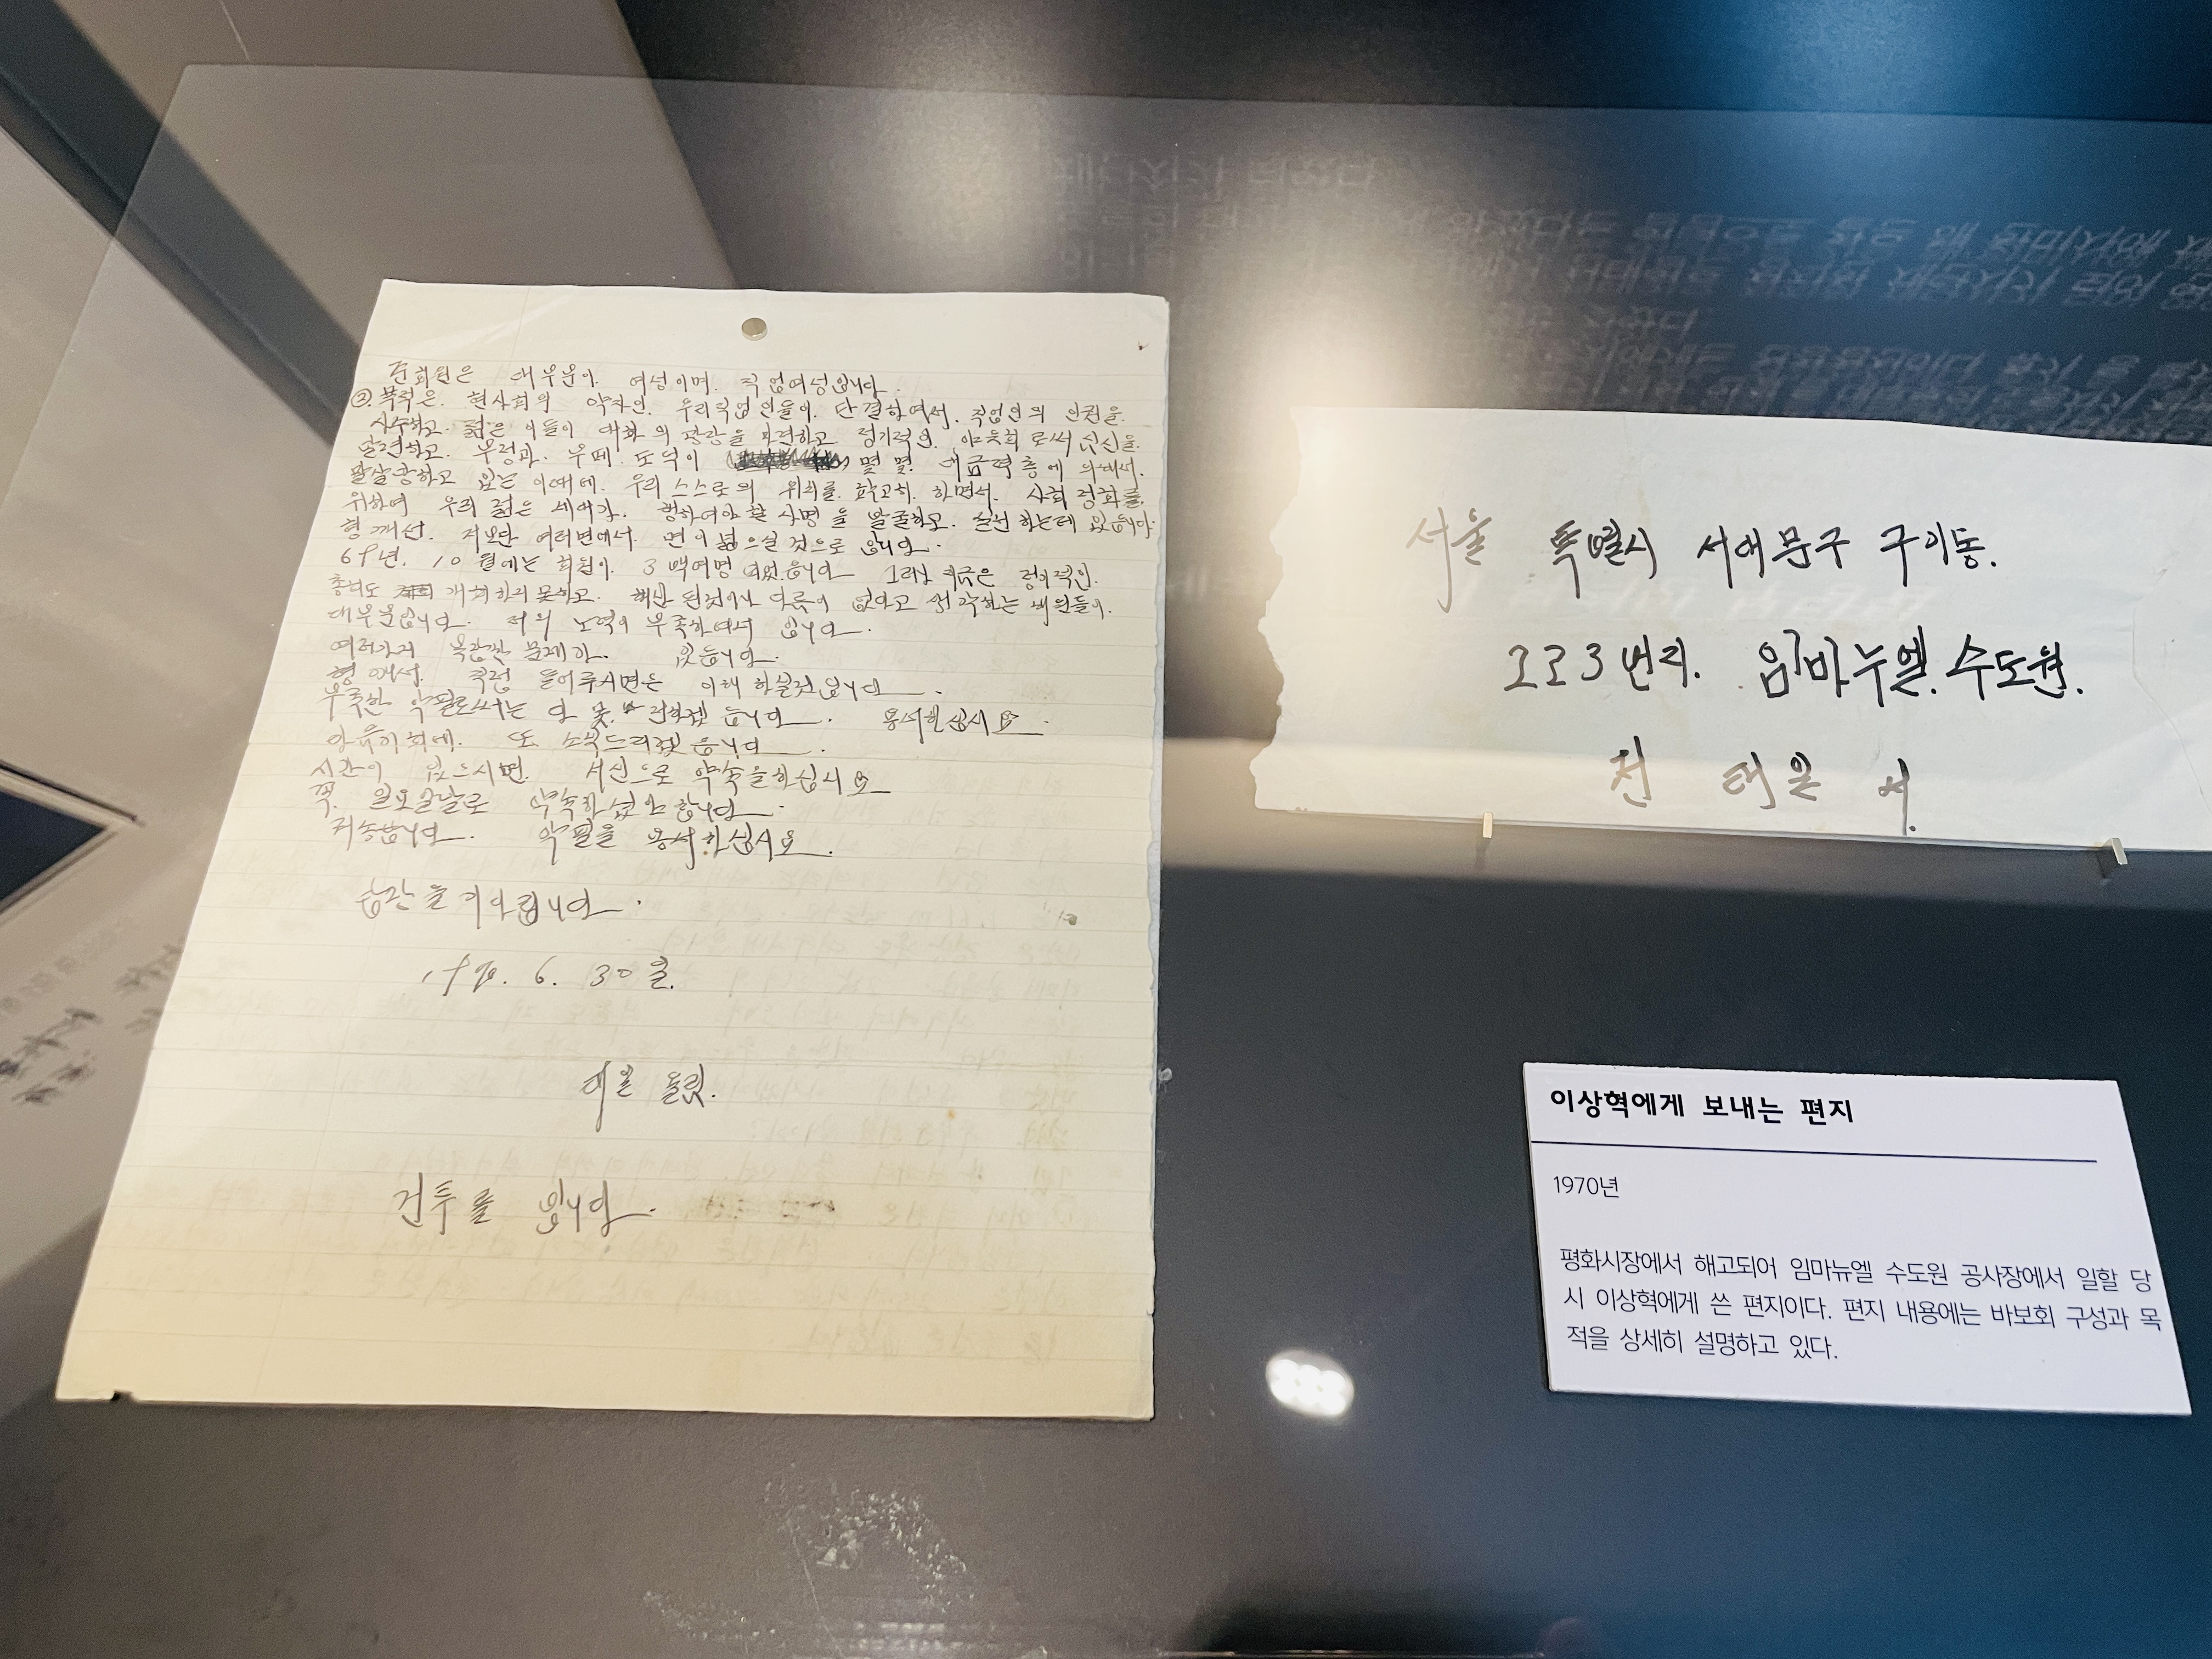 준회원은 대부분이. 여성이며. 직업여성입니다.
②. 목적은. 현사회의 약자인. 우리직업인들이. 단결하여서. 직업인의 인권을.
사수하고. 젊은 이들이 대화의 광장을 마련하고 정기적인. 야유회로써 심신을.
단련하고. 부정과. 부패. 도덕이 몇몇. 계층에 의해서.
말살당하고 있는 이때에. 우리 스스로의 위치를. 확고히. 하면서. 사회 정화를.
위하여 우리 젊은 세대가. 행하여야 할 사명을 발굴하고. 실천하는데 있습니다.
형께선. 저보단 여러면에서. 면이 넓으실 것으로 압니다.
69년. 10월에는 회원이. 3백여명 되었읍니다 그러나 지금은 정기적인.
총회도 개최하지 못하고. 해산된것이나 다름이 없다고 생각하는 회원들이.
대부분입니다. 저의 노력이 부족하여서 입니다.
여러가지 복잡한 문제가. 있읍니다.
형께서. 직접 들어주시면은 이해 하실것입니다.
부족한 악필로써는 다 못. 하겠읍니다. 용서하십시요.
야유회 회에. 또 소식드리겠읍니다.
시간이 있으시면. 서신으로 약속을하십시요
꼭. 일요일날로 약속하셨야 합니다.
죄송합니다. 악필을 용서하십시요.
답장을 기다립니다.
1970. 6. 30일.
태일 드림.
건투를 빕니다.
서울 특별시 서대문구 구기동.
223번지. 임마누엘. 수도원.
전 태일 서.
이상혁에게 보내는 편지
1970년
평화시장에서 해고되어 임마뉴엘 수도원 공사장에서 일할 당
시 이상혁에게 쓴 편지이다. 편지 내용에는 바보회 구성과 목
적을 상세히 설명하고 있다.